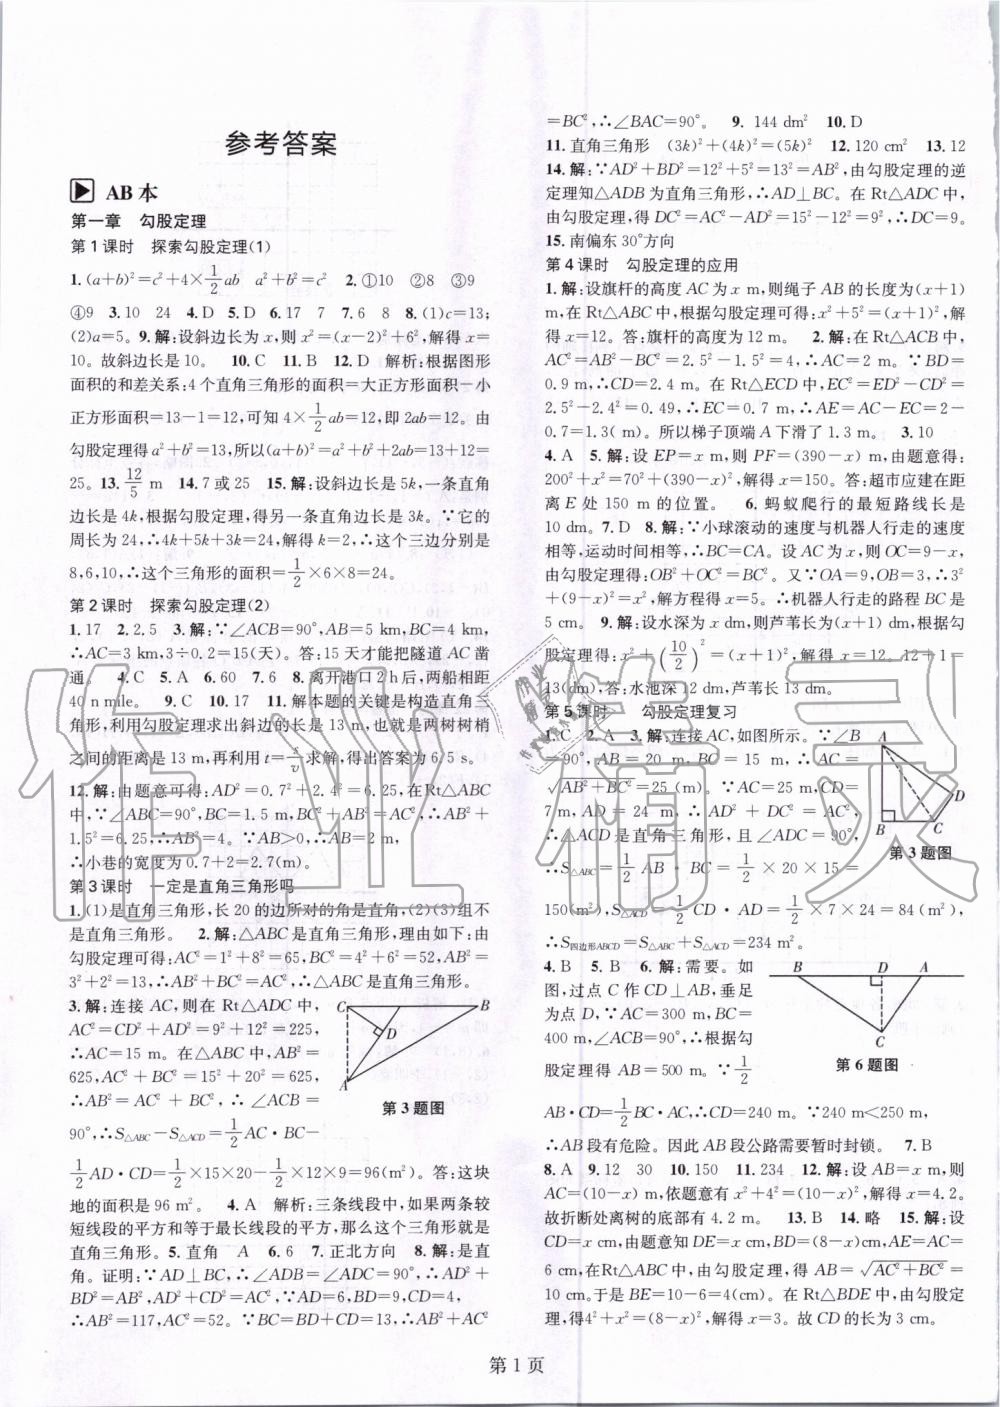 参考答案
AB本
第一章 勾股定理
第1课时 探索勾股定理(1)
1.(a+b)²=c²+4×1/2ab a²+b²=c² 2.①10 ②8 ③9
④9 3.10 24 4.D 5.D 6.17 7 7.6 8 8.(1)c=13;
(2)a=5. 9.解:设斜边长为x,则x²=(x-2)²+6²,解得x=
10。故斜边长是10。 10.C 11.B 12.D 解析:根据图形
面积的和差关系:4个直角三角形的面积=大正方形面积-小
正方形面积=13-1=12,可知4×1/2ab=12,即2ab=12。由
勾股定理得a²+b²=13,所以(a+b)²=a²+b²+2ab=13+12=
25。 13.12/5 m 14.7或25 15.解:设斜边长是5k,一条直角
边长是4k,根据勾股定理,得另一条直角边长是3k。∵它的
周长为24,∴4k+5k+3k=24,解得k=2,∴这个三边分别是
8,6,10,∴这个三角形的面积=1/2×6×8=24。
第2课时 探索勾股定理(2)
1.17 2.2.5 3.解:∵∠ACB=90°,AB=5 km,BC=4 km,
∴AC=3 km,3÷0.2=15(天)。答:15天才能把隧道AC凿
通。 4.C 5.A 6.60 7.6 8.离开港口2 h后,两船相距
40 n mile. 9.C 10.17 11.解本题的关键是构造直角三
角形,利用勾股定理求出斜边的长是13 m,也就是两树树梢
之间的距离是13 m,再利用t=s/v求解,得出答案为6.5 s。
12.解:由题意可得:AD²=0.7²+2.4²=6.25,在Rt△ABC
中,∵∠ABC=90°,BC=1.5 m,BC²+AB²=AC²,∴AB²+
1.5²=6.25,∴AB²=4。∵AB>0,∴AB=2 m,
∴小巷的宽度为0.7+2=2.7(m)。
第3课时 一定是直角三角形吗
1.(1)是直角三角形,长20的边所对的角是直角,(2)(3)组不
是直角三角形。 2.解:△ABC是直角三角形,理由如下:由
勾股定理可得:AC²=1²+8²=65,BC²=4²+6²=52,AB²=
3²+2²=13,∴AB²+BC²=AC²,∴△ABC是直角三角形。
3.解:连接AC,则在Rt△ADC中,
AC²=CD²+AD²=9²+12²=225,
∴AC=15 m。在△ABC中,AB²=
625,AC²+BC²=15²+20²=625,
∴AB²=AC²+BC²,∴∠ACB=
90°,∴S△ABC-S△ACD=1/2AC·BC-
C B D A
第3题图
1/2AD·CD=1/2×15×20-1/2×12×9=96(m²)。答:这块
地的面积是96 m²。 4.A 解析:三条线段中,如果两条较
短线段的平方和等于最长线段的平方,那么这个三角形就是
直角三角形。 5.直角 A 6.6 7.正北方向 8.解:是直
角。证明:∵AD⊥BC,∴∠ADB=∠ADC=90°,∴AD²+
BD²=AB²,AD²+CD²=AC²。∵AD=6,BD=9,CD=4,
∴AB²=117,AC²=52。∵BC=BD+CD=13,∴AB²+AC²
=BC²,∴∠BAC=90°。 9.144 dm² 10.D
11.直角三角形 (3k)²+(4k)²=(5k)² 12.120 cm² 13.12
14.解:∵AD²+BD²=12²+5²=13²=AB²,由勾股定理的逆
定理知△ADB为直角三角形,∴AD⊥BC。在Rt△ADC中,
由勾股定理,得DC²=AC²-AD²=15²-12²=9²,∴DC=9。
15.南偏东30°方向
第4课时 勾股定理的应用
1.解:设旗杆的高度AC为x m,则绳子AB的长度为(x+1)
m,在Rt△ABC中,根据勾股定理可得:x²+5²=(x+1)²,解
得x=12。答:旗杆的高度为12 m。 2.解:在Rt△ACB中,
AC²=AB²-BC²=2.5²-1.5²=4,∴AC=2 m。∵BD=
0.9 m,∴CD=2.4 m。在Rt△ECD中,EC²=ED²-CD²=
2.5²-2.4²=0.49,∴EC=0.7 m,∴AE=AC-EC=2-
0.7=1.3(m)。所以梯子顶端A下滑了1.3 m。 3.10
4.A 5.解:设EP=x m,则PF=(390-x) m,由题意得:
200²+x²=70²+(390-x)²,解得x=150。答:超市应建在距
离E处150 m的位置。 6.蚂蚁爬行的最短路线长是
10 dm。 7.D 8.解:∵小球滚动的速度与机器人行走的速度
相等,运动时间相等,∴BC=CA。设AC为x,则OC=9-x,
由勾股定理得:OB²+OC²=BC²。又∵OA=9,OB=3,∴3²
+(9-x)²=x²,解方程得x=5。∴机器人行走的路程BC是
5 cm。 9.解:设水深为x dm,则芦苇长为(x+1)dm,根据勾
股定理得:x²+(10/2)²=(x+1)²,解得x=12。12+1=
13(dm)。答:水池深12 dm,芦苇长13 dm。
第5课时 勾股定理复习
1.C 2.A 3.解:连接AC,如图所示。∵∠B
=90°,AB=20 m,BC=15 m,∴AC=
√AB²+BC²=25(m)。∵AC=25 m,CD=
7 m,AD=24 m,∴AD²+DC²=AC²,
∴△ACD是直角三角形,且∠ADC=90°,
∴S△ABC=1/2AB·BC=1/2×20×15=
A D B C
第3题图
150(m²),S△ACD=1/2CD·AD=1/2×7×24=84(m²),
∴S四边形ABCD=S△ABC+S△ACD=234 m²。
4.B 5.B 6.解:需要。如
图,过点C作CD⊥AB,垂足
为点D,∵AC=300 m,BC=
400 m,∠ACB=90°,∴根据勾
股定理得AB=500 m。∵1/2
B D A C
第6题图
AB·CD=1/2BC·AC,∴CD=240 m。∵240 m<250 m,
∴AB段有危险。因此AB段公路需要暂时封锁。 7.B
8.A 9.12 30 10.150 11.234 12.解:设AB=x m,则
AC=(10-x) m,依题意有x²+4²=(10-x)²,解得x=4.2。
故折断处离树的底部有4.2 m。 13.B 14.略 15.解:设
CD=x cm,由题意知DE=x cm,BD=(8-x)cm,AE=AC=
6 cm,在Rt△ABC中,由勾股定理,得AB=√AC²+BC²=
10 cm。于是BE=10-6=4(cm)。在Rt△BDE中,由勾股定
理,得4²+x²=(8-x)²,解得x=3。故CD的长为3 cm。
第1页
作业精灵